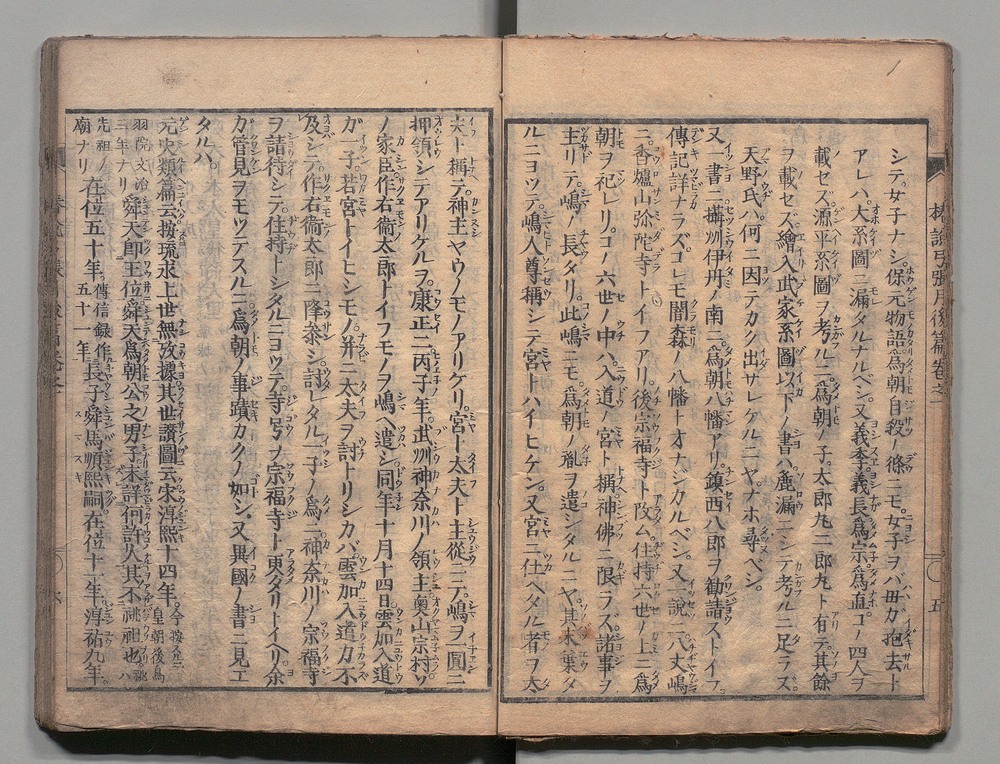 シテ女子ナシ。保元物語爲朝自殺ノ條ニモ。女子ヲハ母ガ抱去ト
アレハ大系圖ニ漏タルナルベシ。又義季義長爲宗爲直。コノ四人ヲ
載セズ。源平系圖ヲ考ルニ爲朝ノ子。太郎丸二郎丸ト有テ。其餘
ヲ載セズ。繪入武家系圖以下ノ書ハ麁漏ニシテ考ルニ足ラズ。
天野氏ハ何ニ因テカク出サレケルニヤ。ナホ尋ベシ。
又一書ニ攝州伊丹ノ南ニ。爲朝八幡アリ。鎭西八郎ヲ勸請ストイフ。
傳記詳ナラズ。コレモ闇森ノ八幡トオナシカルベシ。又一説ニ八丈嶋
ニ。香爐山弥陀寺トイフアリ。後宗福寺ト改ム。住持六世ノ上ニ爲
朝ヲ祀レリ。コノ六世ノ中ハ入道ノ宮ト稱シ。神佛ニ限ラズ。諸事ヲ
主リテ。嶋ノ長タリ。此嶋ニモ爲朝ノ胤ヲ遣シタルニヤ。其末葉タ
ルニヨツテ。嶋人尊稱シテ宮トハイヒケン。又宮ニ仕ヘタル者ヲ太
夫ト稱テ。神主ヤウノモノアリケリ。宮ト太夫ト主從ニテ。嶋ヲ圓ニ
押領シテアリケルヲ。康正二丙子年。武州神奈川ノ領主奧山宗村ソ
ノ家臣作右衞太郎トイフモノヲ嶋ヘ遣シ。同年十月十四日。雲加入道
ガ一子。若宮トイヒシモノ。并ニ太夫ヲ討トリシカバ。雲加入道力不
及シテ。作右衞太郎ニ降參シ。討レタル一子ノ爲ニ。神奈川ノ宗福寺
ヲ請待シテ。住持トシタルニヨツテ。寺号ヲ宗福寺ト更タリトイヘリ。余
カ管見ヲモツテスルニ。爲朝ノ事蹟カクノ如シ。又異國ノ書ニ見エ
タルハ。
元史類篇云。按琉求上世無攷據。其世讚圖云。宋淳熙十四年。今按スルニ 皇朝後鳥
羽院文治三年ナリ 舜天即王位。舜天爲朝公之男子。未詳何許人。其不祧祖也。祧ハ
先祖ノ廟ナリ 在位五十年。傳信録作五十一年。長子舜馬順熙嗣。在位十一年。淳祐九年。